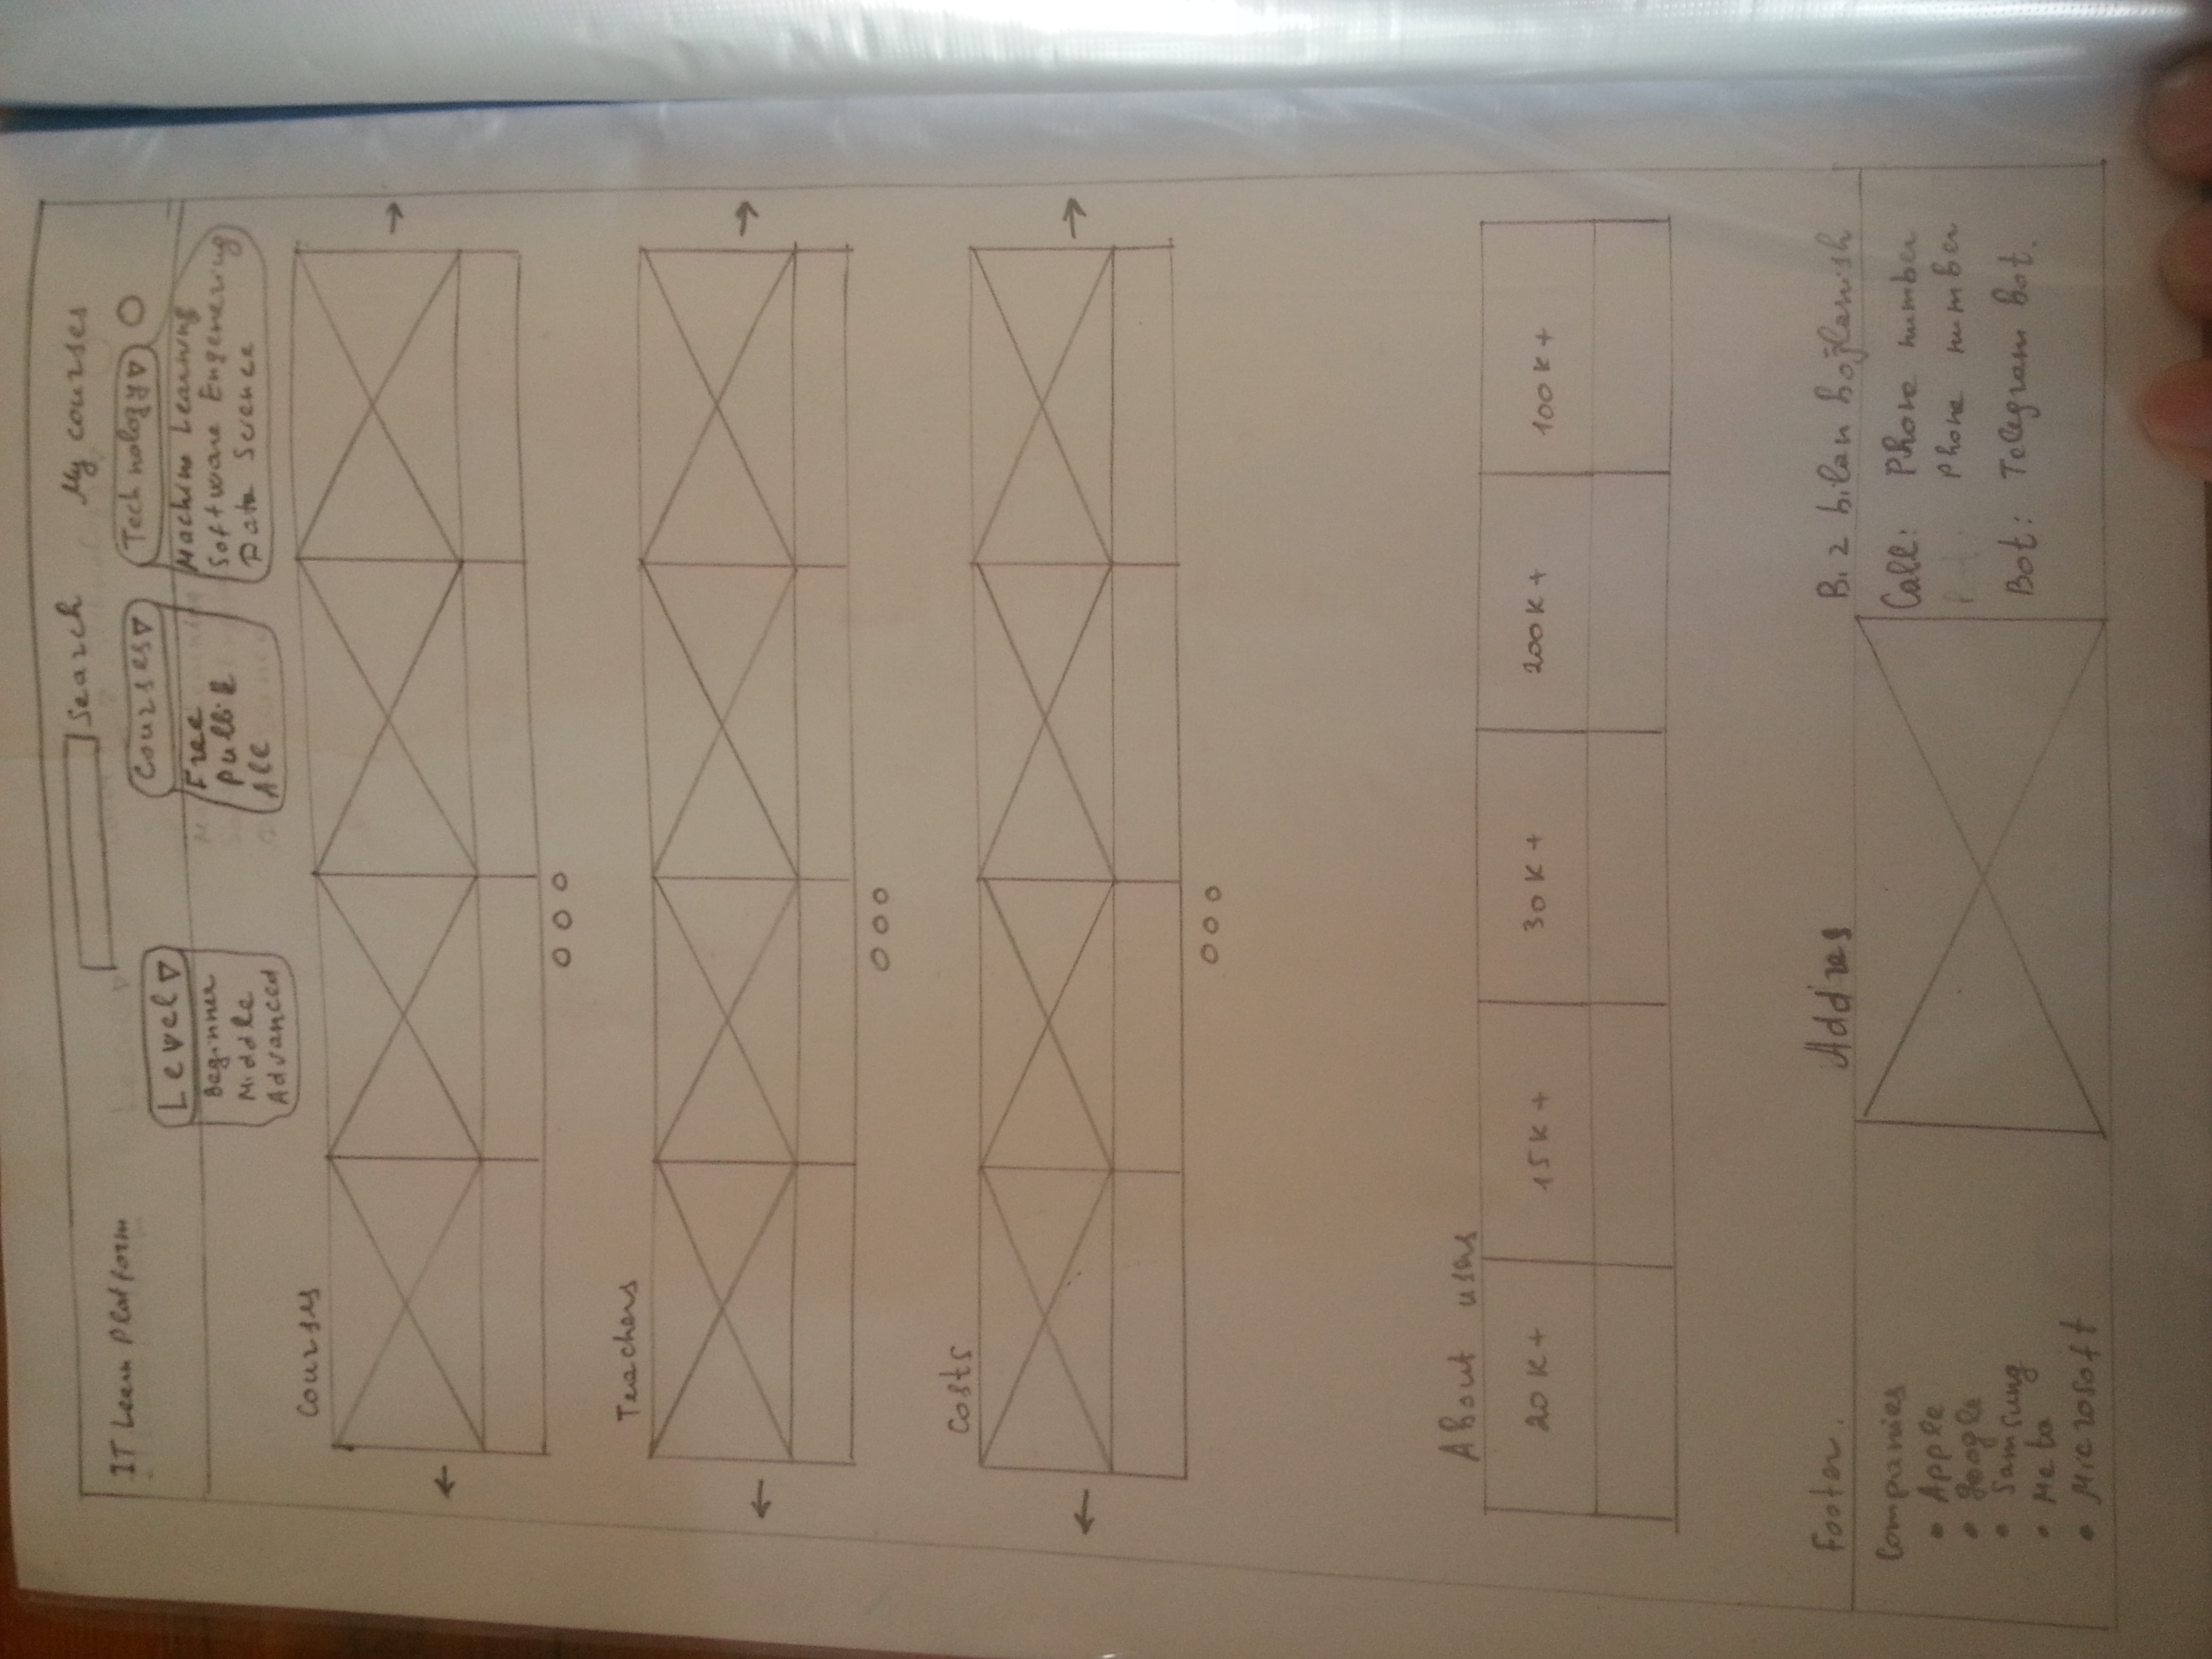 IT Learn Platform
Search
My courses
Level
Beginner
Middle
Advanced
Courses
Free
All
Technology
Machine Learning
Software Engenering
Data Science
Courses
Teachers
Costs
About users
20 K +
15 K +
30 K +
200 K +
100 K +
Footer.
Companies
• Apple
• Google
• Samsung
• Meta
• Microsoft
Addres
Biz bilan bog'lanish
Call: Phone number
Phone number
Bot: Telegram bot.